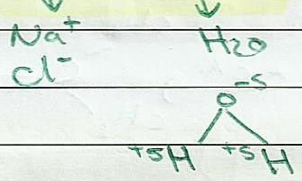 Na⁺
Cl⁻
H₂O
-δ
O
+δH +δH